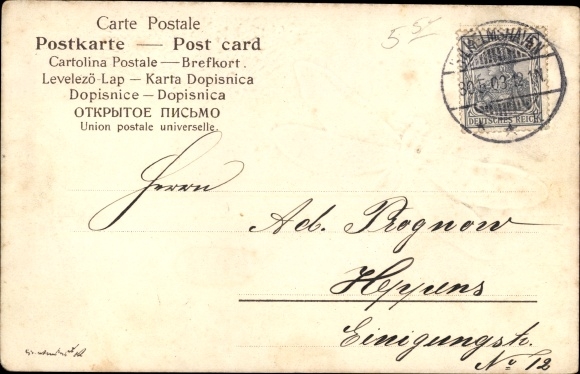 Carte Postale
Postkarte — Post card
Cartolina Postale — Brefkort.
Levelező-Lap — Karta Dopisnica
Dopisnice — Dopisnica
ОТКРЫТОЕ ПИСЬМО
Union postale universelle.
55
WILHELMSHAVEN
30.5.03.
DEUTSCHES REICH
Herrn
Ad. Prognow
Heppens
Einigungstr.
No 12